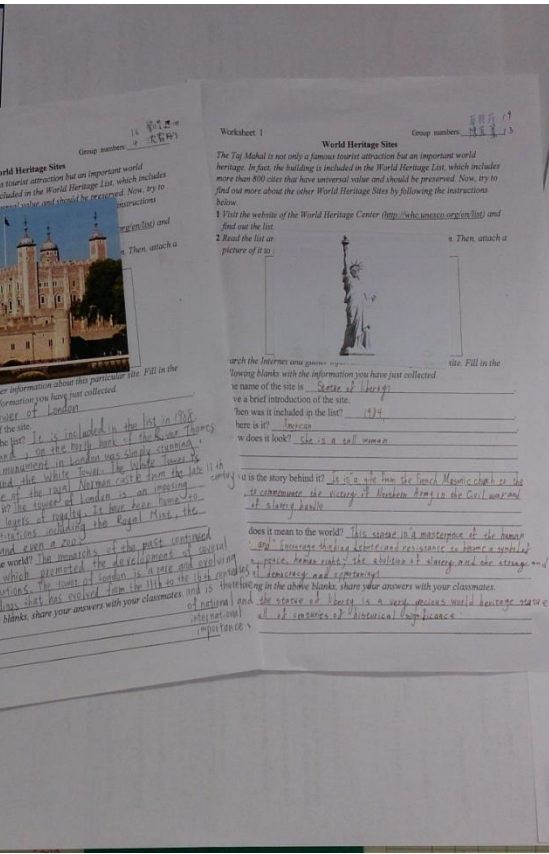 Group numbers:
World Heritage Sites
s tourist attraction but an important world
cluded in the World Heritage List, which includes
sal value and should be preserved. Now, try to
instructions
org/en/list) and
Then, attach a
er information about this particular site. Fill in the
formation you have just collected.
ower of London
f the site.
he list? It is included in the list in 1988.
on the north bank of the River Thames
monument in London was simply stunning
and the White Tower. The White Tower is
e of the royal Norman castle from the late 11 th century
it? The tower of London is an imposing
layers of royalty. It have been home to
titutions including the Royal Mint, the
and even a zoo.
e world? The monarchs of the past continued
which promoted the development of several
utions. The tower of London is a rare and evolving
ings that has evolved from the 11th to the 16th centuries
blanks, share your answers with your classmates. and is
of national and
international
importance.
Worksheet 1
Group numbers: 19
13
World Heritage Sites
The Taj Mahal is not only a famous tourist attraction but an important world
heritage. In fact, the building is included in the World Heritage List, which includes
more than 800 cites that have universal value and should be preserved. Now, try to
find out more about the other World Heritage Sites by following the instructions
below.
1 Visit the website of the World Heritage Center (http://whc.unesco.org/en/list) and
find out the list
2 Read the list ar Then, attach a
picture of it to
arch the Internet and site. Fill in the
lowing blanks with the information you have just collected.
e name of the site is Statue of liberty
ve a brief introduction of the site.
hen was it included in the list? 1984.
here is it? American
w does it look? she is a tall woman
at is the story behind it? Is is a gife from the French Masonic church to the
to commemorate the victory of Northern Army in the Civil war and
of slavery
does it mean to the world? This statue is a masterpiece of the human
debate and resistance to become a symbol of
peace, human right, the abolition of slavery and
democracy and opportunity
ing in the above blanks, share your answers with your classmates.
the statue of liberty is a very precious world heritage statue
all of centuries of historical significance